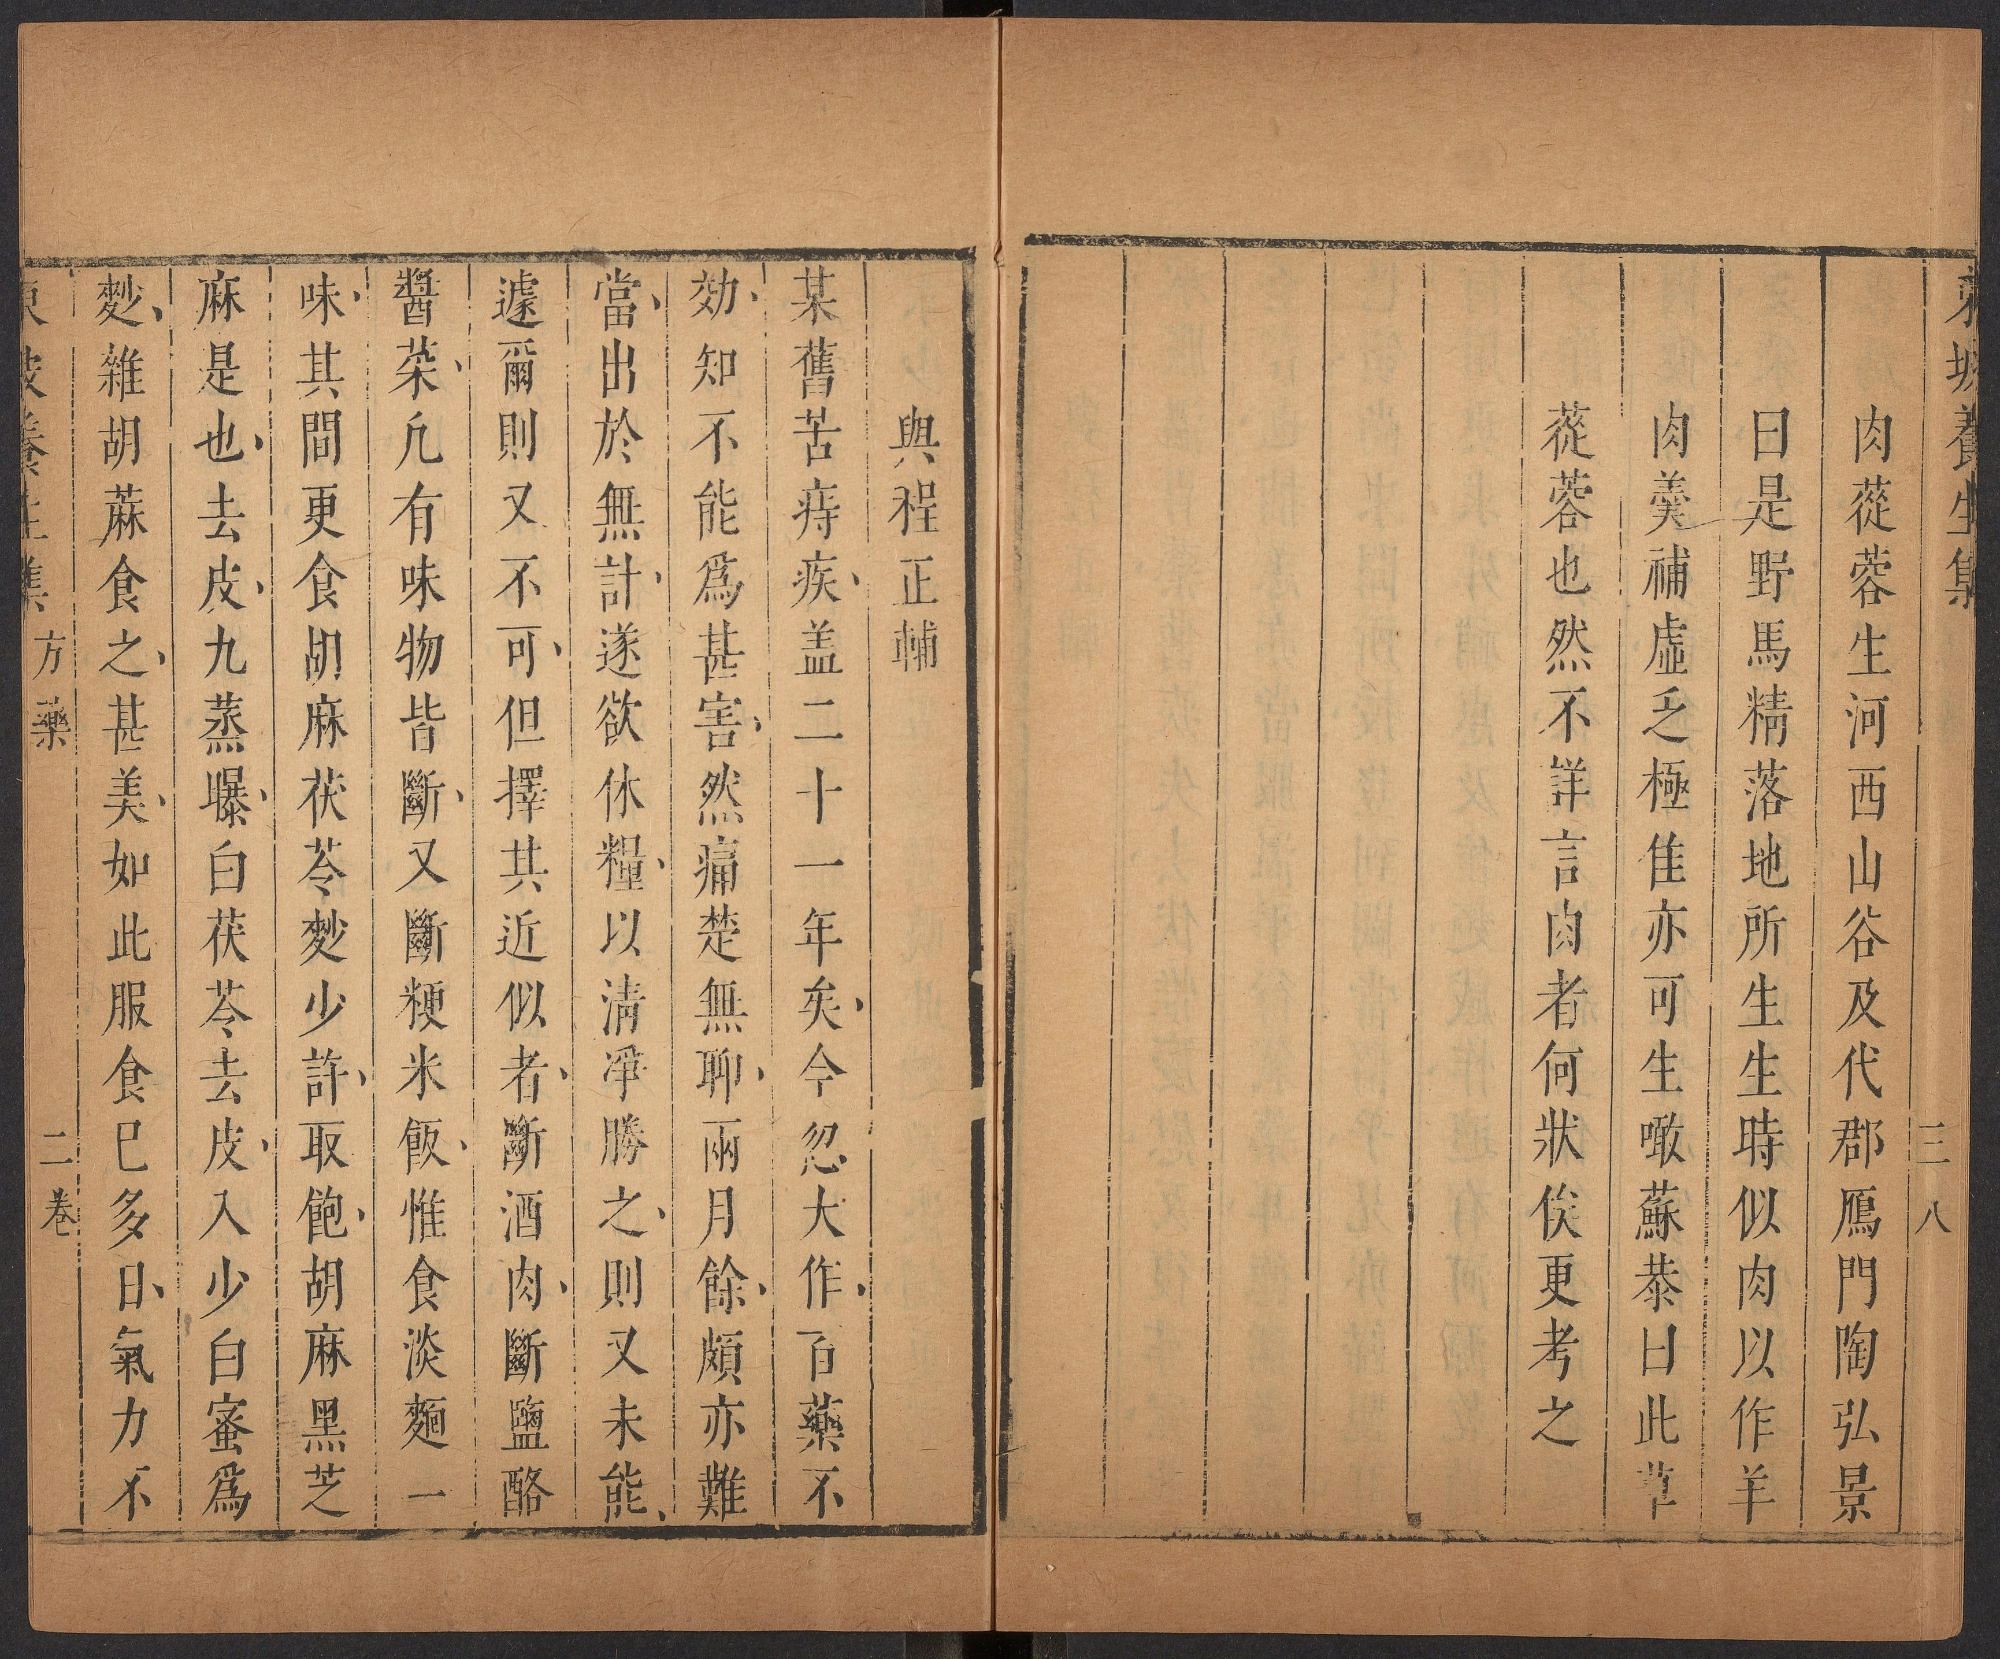 東坡養生集
三八
肉蓯蓉生河西山谷及代郡鴈門陶弘景
曰是野馬精落地所生生時似肉以作羊
肉羹補虛乏極佳亦可生噉蘇恭曰此草
蓯蓉也然不詳言肉者何狀俟更考之
與程正輔
某舊苦痔疾、盖二十一年矣、今忽大作、百藥不
効、知不能爲甚害、然痛楚無聊、兩月餘、頗亦難
當、出於無計、遂欲休糧、以清凈勝之、則又未能、
遽爾則又不可、但擇其近似者、斷酒肉、斷鹽酪
醬菜、凢有味物皆斷、又斷粳米飯、惟食淡麵一
味、其間更食胡麻茯苓麨少許、取飽、胡麻黑芝
麻是也、去皮、九蒸曝、白茯苓去皮、入少白蜜爲
麨、雜胡蔴食之、甚美、如此服食巳多日、氣力不
東坡養生集 方藥 二卷